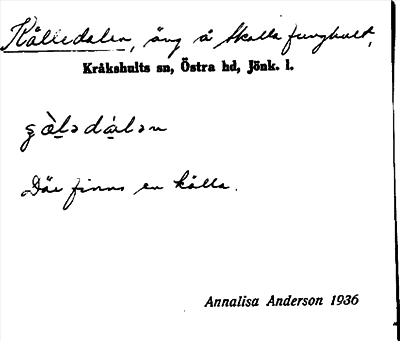 Källedalen, äng å Skalla ljunghult,
Kråkshults sn, Östra hd, Jönk. l.
Där finns en källa.
Annalisa Anderson 1936